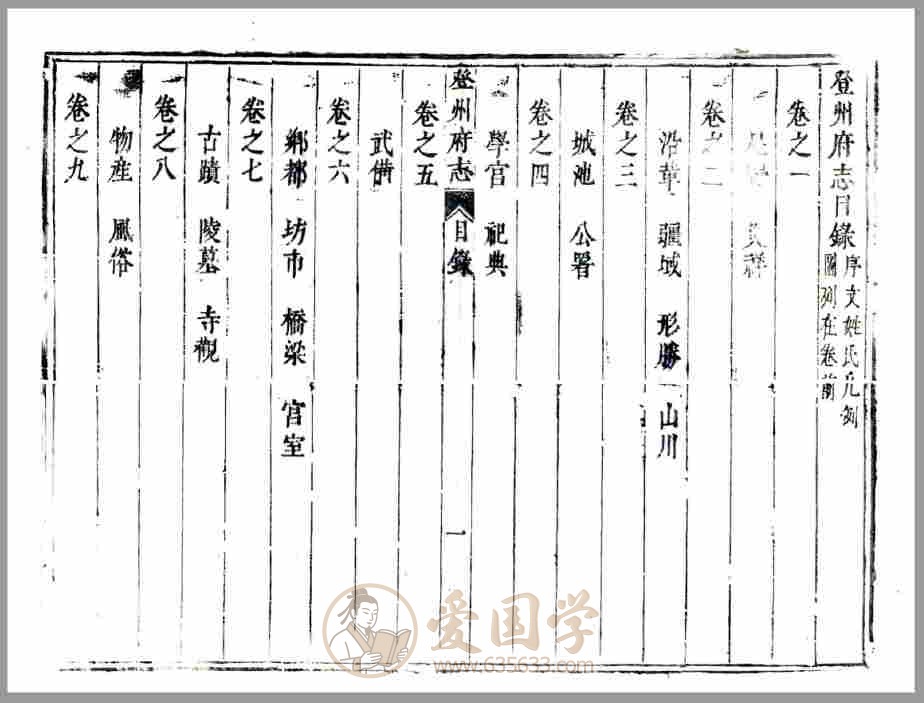 登州府志目錄 序文姓氏凡例
圖列在卷前
卷之一
祥
卷之二
沿革 疆域 形勝 山川
卷之三
城池 公署
卷之四
學宮 祀典
登州府志 目錄 一
卷之五
武備
卷之六
鄉都 坊市 橋梁 宮室
卷之七
古蹟 陵墓 寺觀
卷之八
物産 風俗
卷之九
爱国学
www.635633.com